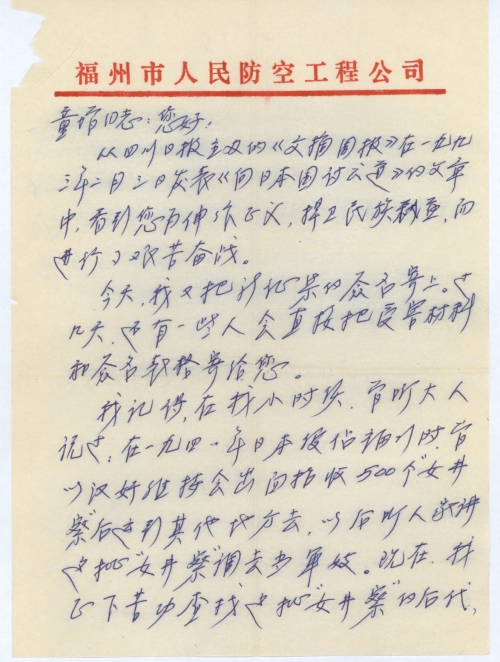 福州市人民防空工程公司
童增同志：您好！
从四川日报主办的《文摘周报》在一九九
三年二月三日发表《向日本国讨公道》的文章
中，看到您为伸张正义，捍卫民族尊严，而
进行了艰苦奋战。
今天，我又把我征集的签名寄上。这
几天，还有一些人会直接把受害材料
和签名表格寄给您。
我记得，在我小时候，曾听大人
说过：在一九四一年日本侵占福州时，曾
以汉奸维持会出面招收500个“女警
察”后送到其他地方去，以后听人家讲
这批“女警察”调去当军妓。现在，我
正下苦功查找这批“女警察”的后代，